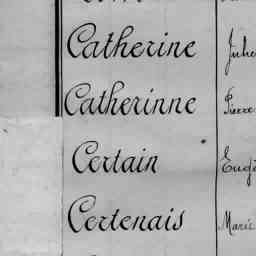 Catherine Jule
Catherinne Pierre
Certain Eugè
Certenais Marie